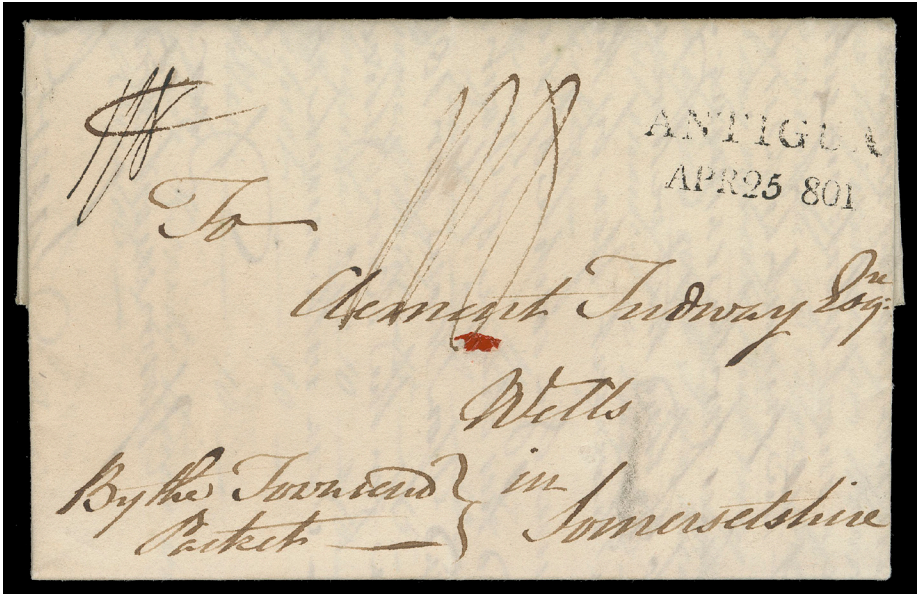 ANTIGUA
APR 25 801
To
Clement Tudway Esqre
Wells
in
Somersetshire
By the Townsend
Packet